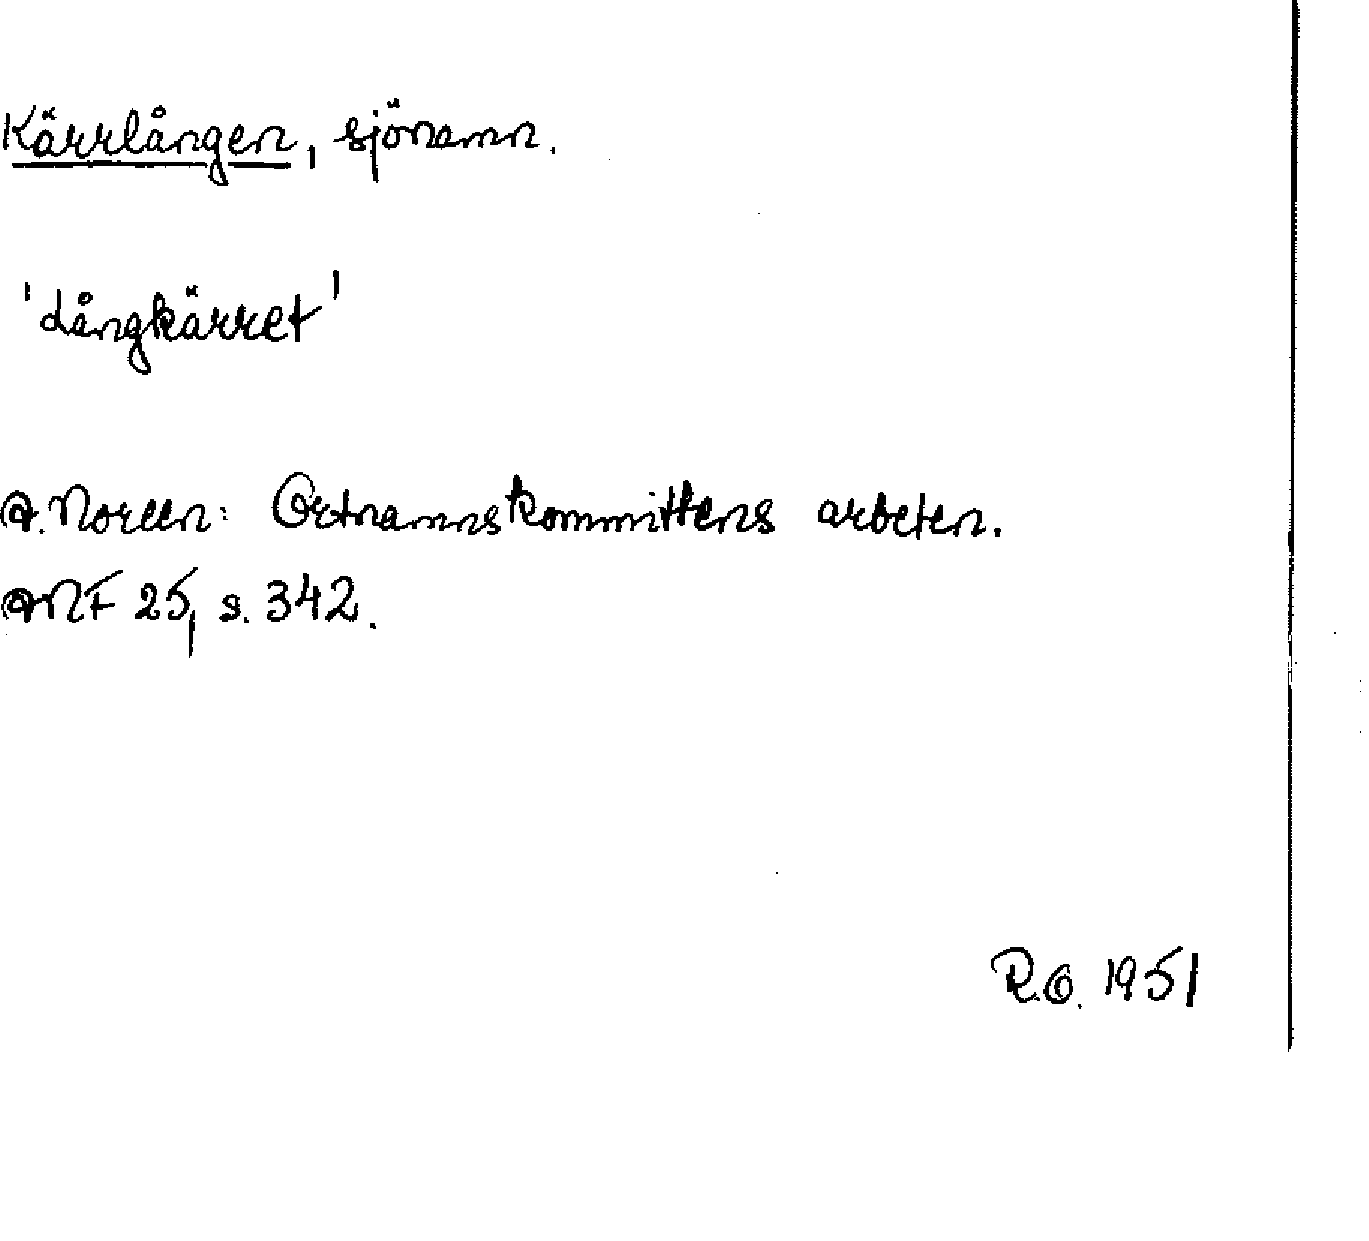 Kärrlången, sjönamn.
'Långkärret'
A. Noreen: Ortnamnskommittens arbeten.
ANF 25, s. 342.
R.O. 1951